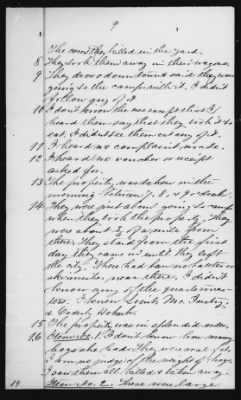 9
The cows they killed in the yard.
8 They took them away in their wagons.
9 They drove down town & said they were
going to the camps with it. I didn't
follow any of it.
10 I don't know the camps but I
heard them say that they took it to
eat. I didn't see them eat any of it.
11 I heard no complaint made.
12 I heard no voucher or receipt
asked for.
13 The property was taken in the
morning between 7, 8, & 9 o'clock.
14 They were just about going to camp
when they took the property. They
were about ½ of a mile from
there. They staid from the first
day they came in until they left
the city. There had been no battle or
skirmish near there. I didn't
know any of the quartermas-
ters. I knew
& Orderly
15 The property was in splendid order.
16 Item No. 1. I don't know how many
hogs she had. They were not fat
I am no judge of the weight of hogs
I saw them all killed & taken away.
Item No. 2. There were large
19